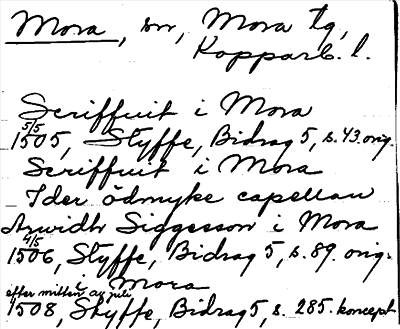 Mora, sn, Mora tg,
Kopparb. l.
Scriffuit i Mora
5/5
1505, Styffe, Bidrag 5, s. 43. orig.
Scriffuit i Mora
Ider ödmyke capellan
Arwidh Siggesson i Mora
4/5
1506, Styffe, Bidrag 5, s. 89. orig.
i Mora
efter mitten av juli
1508, Styffe, Bidrag 5, s. 285. koncept